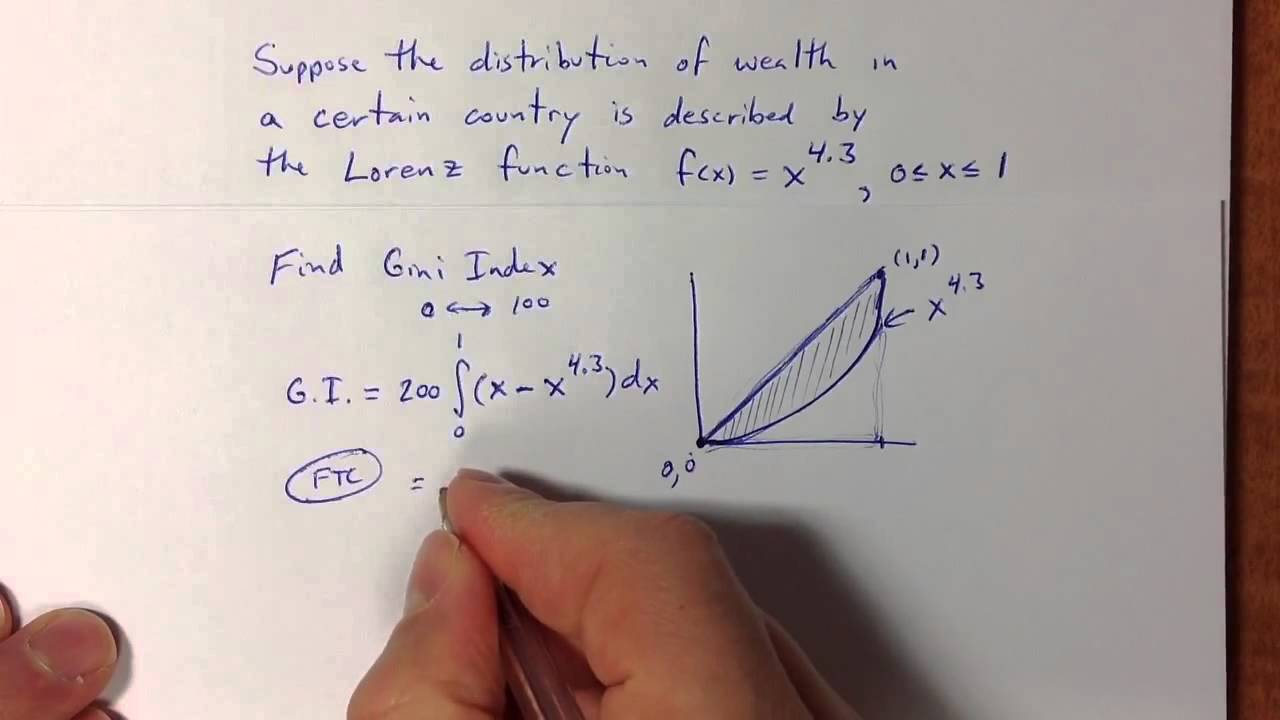 Suppose the distribution of wealth in
a certain country is described by
the Lorenz function f(x) = x^4.3, 0 ≤ x ≤ 1
Find Gini Index
0 ↔ 100
G.I. = 200 ∫₀¹ (x - x^4.3) dx
(1,1)
← x^4.3
0,0
FTC =